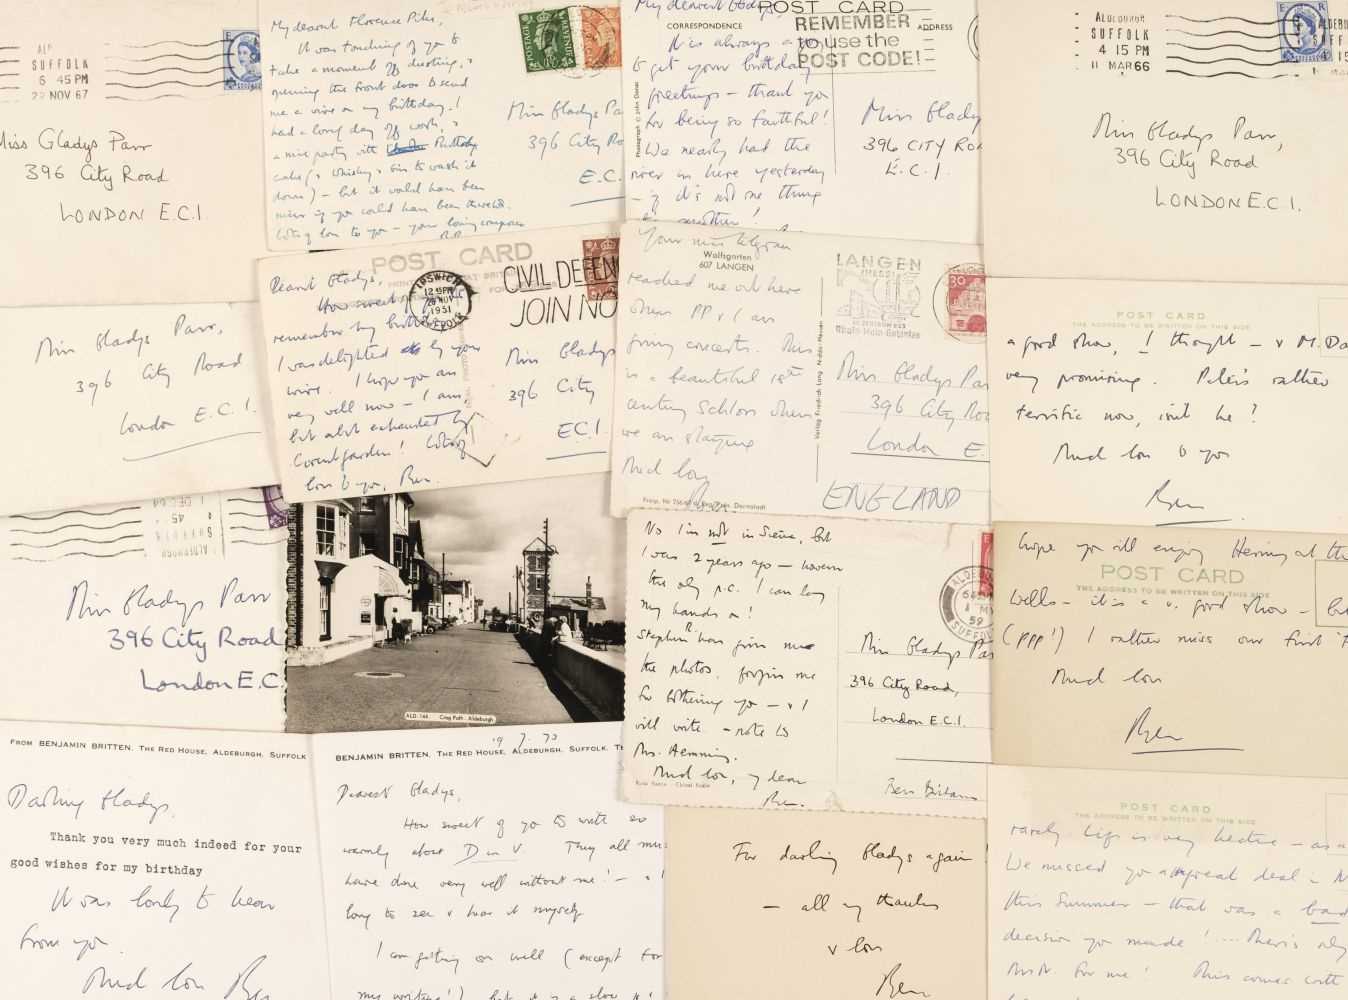 SUFFOLK
6 45 PM
22 NOV 67
Miss Gladys Parr
396 City Road
LONDON E.C.1.
My dearest Florence Pike,
It was touching of you to
take a moment off dusting, &
opening the front door to send
me a wire on my birthday!
had a long day of work, &
a nice party with Birthday
cake (& whisky & gin to wash it
down) – but it would have been
nicer if you could have been there.
Lots of love to you – your loving composer
POSTAGE
REVENUE
Miss Gladys
396 City Ro
E.C.
My dearest Gladys,
CORRESPONDENCE
POST CARD
ADDRESS
REMEMBER
to use the
POST CODE!
It is always a
to get your birthday
greetings – thank you
for being so faithful!
We nearly had the
river in here yesterday
– if it's not one thing
another!
Photograph © John Donat
Miss Gladys
396 CITY ROA
E.C.1.
ALDEBURGH
SUFFOLK
4 15 PM
11 MAR 66
Miss Gladys Parr,
396 City Road
LONDON E.C.1.
Miss Gladys Parr,
396 City Road
London E.C.1.
POST CARD
Dearest Gladys,
How sweet of you to
remember my birthday
I was delighted by your
wire. I hope you are
very well now – I am,
but a bit exhausted by
Covent garden! Lots of
love to you, Ben.
IPSWICH
12 15PM
20 NOV
1951
SUFFOLK
CIVIL DEFENC
JOIN NO
Miss Gladys
396 City
EC1.
Your nice telegram
Wolfsgarten
607 LANGEN
reached me out here
where PP & I are
giving concerts. This
is a beautiful 18th
century Schloss where
we are staying
Much love
LANGEN
(HESS)
Rhein-Main-Gebietes
30
Miss Gladys Par
396 City Roa
London E.
ENGLAND
POST CARD
THE ADDRESS TO BE WRITTEN ON THIS SIDE
a good show, I thought – & M. Da
very promising. Peter's rather
terrific now, isn't he?
Much love to you
Ben
1 DEC 64
45
SUFFOLK
ALDEBURGH
Miss Gladys Parr
396 City Road
London E.C.
ALD.144. Crag Path. Aldeburgh
No I'm not in Siena, but
I was 2 years ago – however
the only p.c. I can lay
my hands on!
Stephen R has given me
the photos. forgive me
for bothering you – & I
will write – note to
Mrs. Hemming.
Much love, my dear
Ben.
ALDEBURGH
SUFFOLK
59
Miss Gladys Pa
396 City Road,
London E.C.1.
Ben Britten
hope you'll enjoy Herring at the
POST CARD
THE ADDRESS TO BE WRITTEN ON THIS SIDE
Wells – it is a v. good show – but
(PPP!) I rather miss our first
Much love
Ben
FROM BENJAMIN BRITTEN, THE RED HOUSE, ALDEBURGH, SUFFOLK
Darling Gladys,
Thank you very much indeed for your
good wishes for my birthday
It was lovely to hear
from you.
Much love Ben
19.7.73
BENJAMIN BRITTEN, THE RED HOUSE, ALDEBURGH, SUFFOLK. TE
Dearest Gladys,
How sweet of you to write so
warmly about D in V. They all mus
have done very well without me! – a
long to see & hear it myself
I am getting on well (except for
my writing!) but it is a slow
For darling Gladys again!
– all my thanks
& love
Ben
POST CARD
THE ADDRESS TO BE WRITTEN ON THIS SIDE
rarely Life is very hectic – as a
We missed you a great deal in
this Summer – that was a bad
decision you made! .... There's only
for me! This comes with